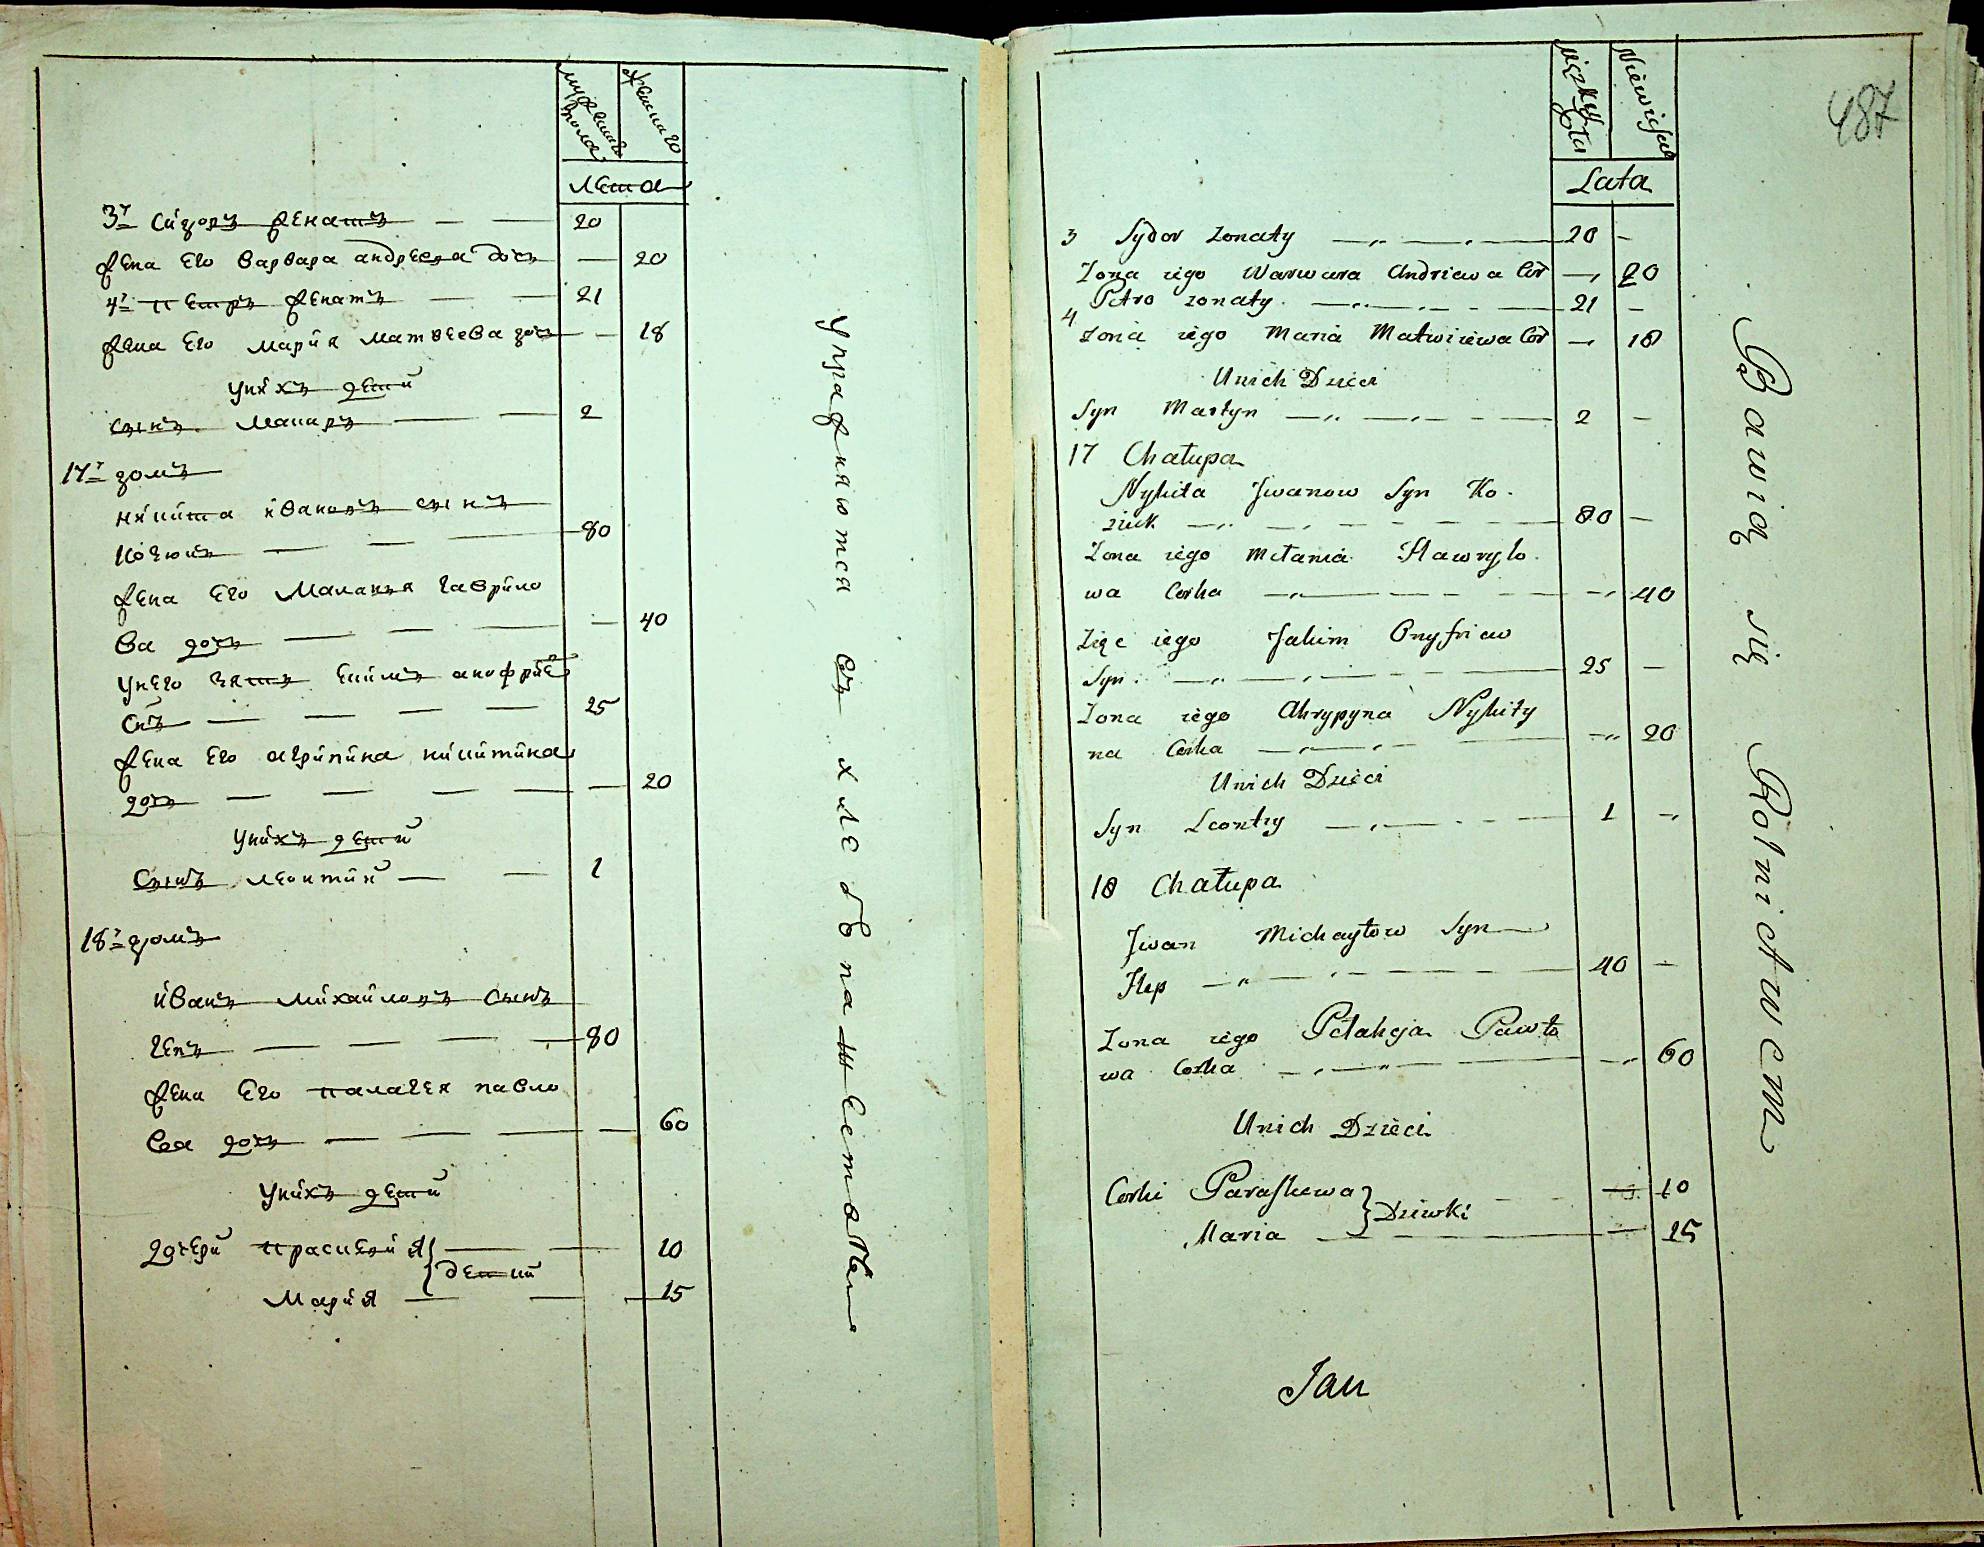 мужеска пола
женска го
лета
3й Сидоръ женатъ — — 20
жена его варвара андреева дочь — 20
4й петръ женатъ — — 21
жена его мария матвеева дочь — 18
унихъ дети
сынъ макаръ — — 2
17й домъ
никита ивановъ сынъ
козюкъ — — — 80
жена его маланья гаврило
ва дочь — — — — 40
унего зять екимъ анофрие
снъ — — — — 25
жена его агрипина никитина
дочь — — — — — 20
унихъ дети
Сынъ леонтий — — 1
18й домъ
иванъ михайловъ сынъ
гепъ — — — — 80
жена его палагея павло
ва дочь — — — — 60
унихъ дети
дочери прасковия — — 10
девки
Мария — — — 15
упражняются въ хлебопашестве
487
Męzkiey Płci
Niewieścia
Lata
3 Sydor zonaty — „ — „ — 20 –
Zona iego Warwara Andriewa Cór — „ 20
4 Petro zonaty — „ — „ — 21 –
Zona iego Maria Matwiiewa Cór — „ 18
Unich Dzieci
Syn Martyn — „ — „ — — 2 –
17 Chałupa
Nykita Jwanow Syn Ko-
ziuk — „ — „ — — — 80 –
Zona iego Mełania Hawryło
wa Corka — „ — — — – „ 40
Zięc iego Jakim Onyfriew
Syn — „ — „ — — — 25 –
Zona iego Ahrypyna Nykity
na Corka — „ — „ — – „ 20
Unich Dzieci
Syn Leontiy — „ — — — 1 – „
18 Chałupa
Jwan Michayłow Syn —
Hep — „ — „ — — — 40 –
Zona iego Pełaheja Pawło
wa Corka — „ — „ — – „ 60
Unich Dzieci
Corki Paraskewa — — — 10
Dziwki
Maria — — — — 15
Bawią się Rolnictwem
Jan